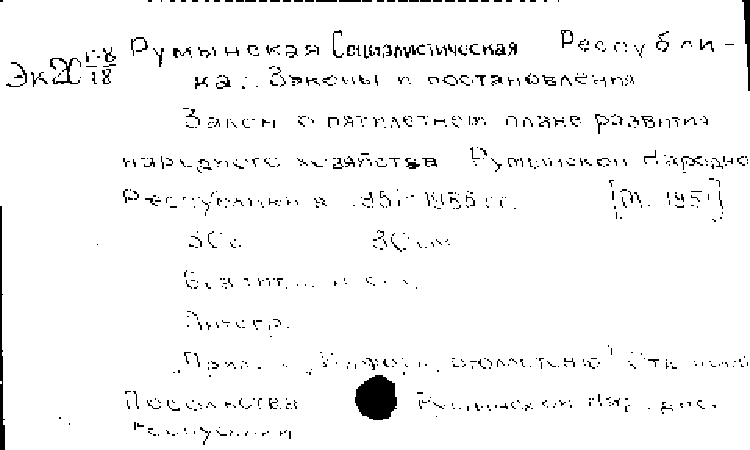 Эк20 18
Румынская Социалистическая Республи-
ка. Законы и постановления
Закон о пятилетнем плане развития
народного хозяйства Румынской Народной
Республики на 1951-1955 гг. [М. 1951]
30с. 30см
Без тит.
Литогр.
"Прил. к "Информ. бюллетеню"
Посольства Румынской Народной
Республики